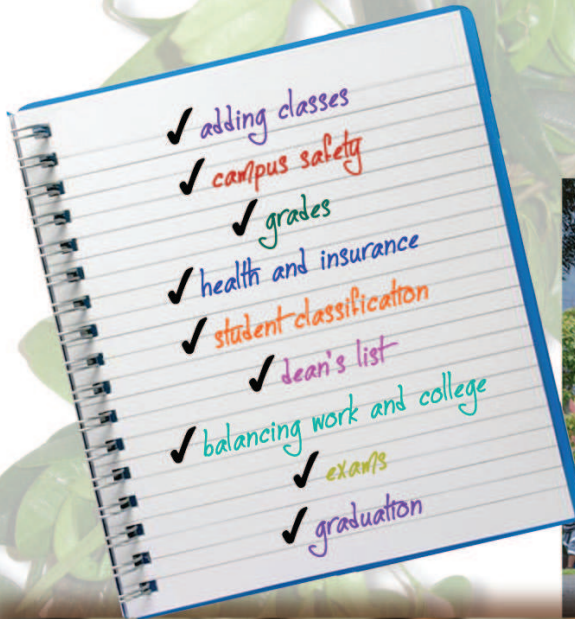 ✓ adding classes
✓ campus safety
✓ grades
✓ health and insurance
✓ student classification
✓ dean's list
✓ balancing work and college
✓ exams
✓ graduation